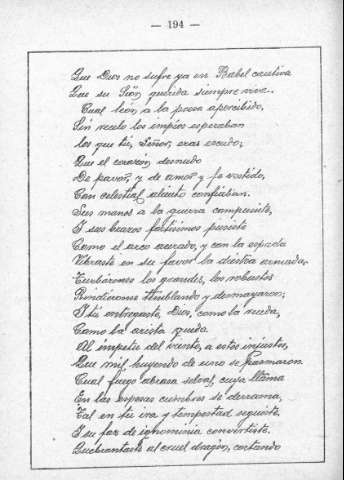 — 194 —
Que Dios no sufre ya en Babel cautiva
Que su Sión querida siempre viva.
Cual león, a la presa apercibido,
Sin recelo los impíos esperaban
los que tú, Señor, eras escudo;
Que el corazón desnudo
De pavor, y de amor y fe vestido,
Con celestial aliento confiaban.
Sus manos a la guerra compusiste,
I sus brazos fortísimos pusiste
Como el arco acerado, y con la espada
Vibraste en su favor la diestra armada.
Turbáronse los grandes, los robustos
Rindiéronse temblando y desmayaron;
I tú entregaste, Dios, como la rueda,
Como la arista queda
Al ímpetu del viento, a estos injustos,
Que mil huyendo de uno se pasmaron
Cual fuego abrasa selvas, cuya llama
En las espesas cumbres se derrama,
Tal en tu ira y tempestad seguiste
I su faz de ignominia convertiste.
Quebrantaste al cruel dragón, cortando